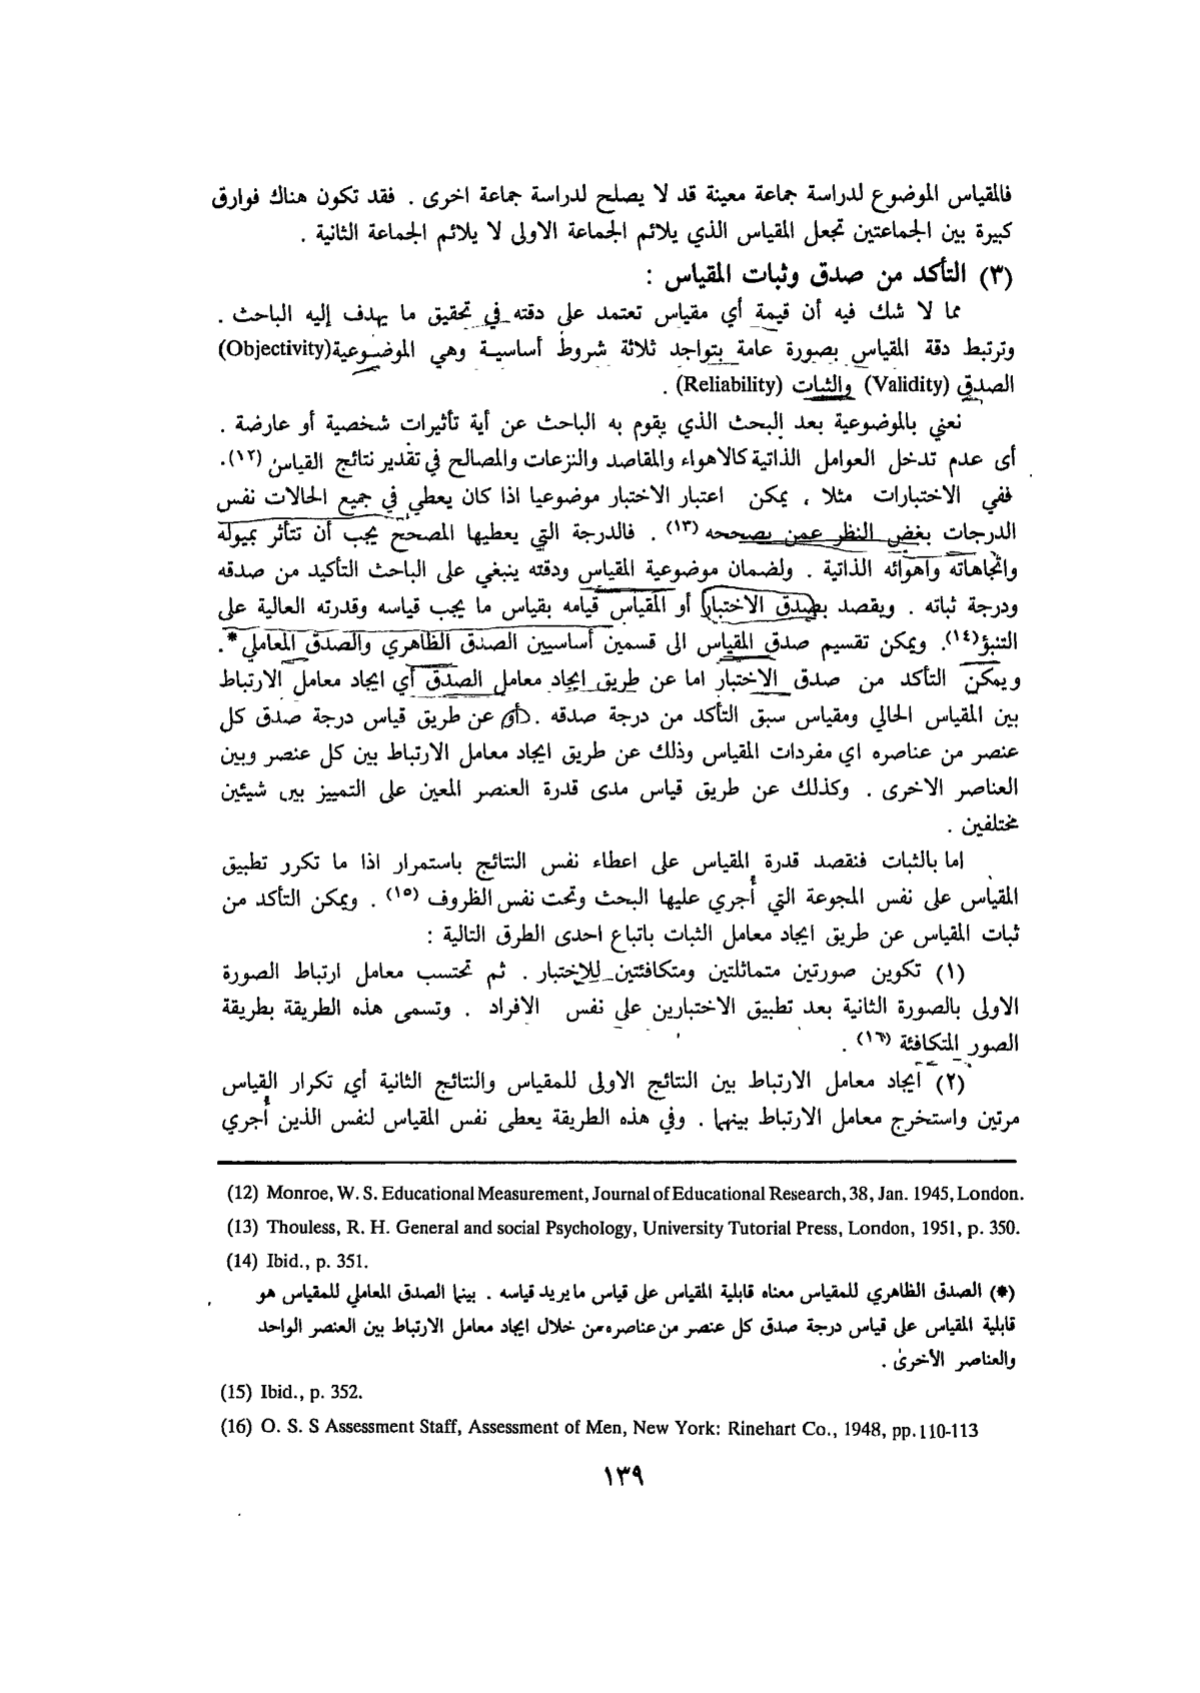 فالمقياس الموضوع لدراسة جماعة معينة قد لا يصلح لدراسة جماعة اخرى . فقد تكون هناك فوارق
كبيرة بين الجماعتين تجعل المقياس الذي يلائم الجماعة الاولى لا يلائم الجماعة الثانية .
(٣) التأكد من صدق وثبات المقياس :
مما لا شك فيه أن قيمة أي مقياس تعتمد على دقته في تحقيق ما يهدف إليه الباحث .
وترتبط دقة المقياس بصورة عامة بتواجد ثلاثة شروط أساسية وهي الموضوعية(Objectivity)
الصدق (Validity) والثبات (Reliability) .
نعني بالموضوعية بعد البحث الذي يقوم به الباحث عن أية تأثيرات شخصية أو عارضة .
أى عدم تدخل العوامل الذاتية كالاهواء والمقاصد والنزعات والمصالح في تقدير نتائج القياس (١٢).
ففي الاختبارات مثلا ، يمكن اعتبار الاختبار موضوعيا اذا كان يعطي في جميع الحالات نفس
الدرجات بغض النظر عمن يصححه (١٣) . فالدرجة التي يعطيها المصحح يجب أن تتأثر بميوله
واتجاهاته وأهوائه الذاتية . ولضمان موضوعية المقياس ودقته ينبغي على الباحث التأكيد من صدقه
ودرجة ثباته . ويقصد بصدق الاختبار أو المقياس قيامه بقياس ما يجب قياسه وقدرته العالية على
التنبؤ(١٤). ويمكن تقسيم صدق المقياس الى قسمين أساسيين الصدق الظاهري والصدق المعاملي *.
ويمكن التأكد من صدق الاختبار اما عن طريق ايجاد معامل الصدق أي ايجاد معامل الارتباط
بين المقياس الحالي ومقياس سبق التأكد من درجة صدقه . أو عن طريق قياس درجة صدق كل
عنصر من عناصره اي مفردات المقياس وذلك عن طريق ايجاد معامل الارتباط بين كل عنصر وبين
العناصر الاخرى . وكذلك عن طريق قياس مدى قدرة العنصر المعين على التمييز بين شيئين
مختلفين .
اما بالثبات فنقصد قدرة المقياس على اعطاء نفس النتائج باستمرار اذا ما تكرر تطبيق
المقياس على نفس المجوعة التي أجري عليها البحث وتحت نفس الظروف (١٥) . ويمكن التأكد من
ثبات المقياس عن طريق ايجاد معامل الثبات باتباع احدى الطرق التالية :
(١) تكوين صورتين متماثلتين ومتكافئتين للاختبار . ثم تحتسب معامل ارتباط الصورة
الاولى بالصورة الثانية بعد تطبيق الاختبارين على نفس الافراد . وتسمى هذه الطريقة بطريقة
الصور المتكافئة (١٦) .
(٢) ايجاد معامل الارتباط بين النتائج الاولى للمقياس والنتائج الثانية أي تكرار القياس
مرتين واستخرج معامل الارتباط بينهما . وفي هذه الطريقة يعطى نفس المقياس لنفس الذين أجري
(12) Monroe, W. S. Educational Measurement, Journal of Educational Research, 38, Jan. 1945, London.
(13) Thouless, R. H. General and social Psychology, University Tutorial Press, London, 1951, p. 350.
(14) Ibid., p. 351.
(*) الصدق الظاهري للمقياس معناه قابلية المقياس على قياس ما يريد قياسه . بينما الصدق المعاملي للمقياس هو
قابلية المقياس على قياس درجة صدق كل عنصر من عناصره من خلال ايجاد معامل الارتباط بين العنصر الواحد
والعناصر الأخرى .
(15) Ibid., p. 352.
(16) O. S. S Assessment Staff, Assessment of Men, New York: Rinehart Co., 1948, pp.110-113
١٣٩